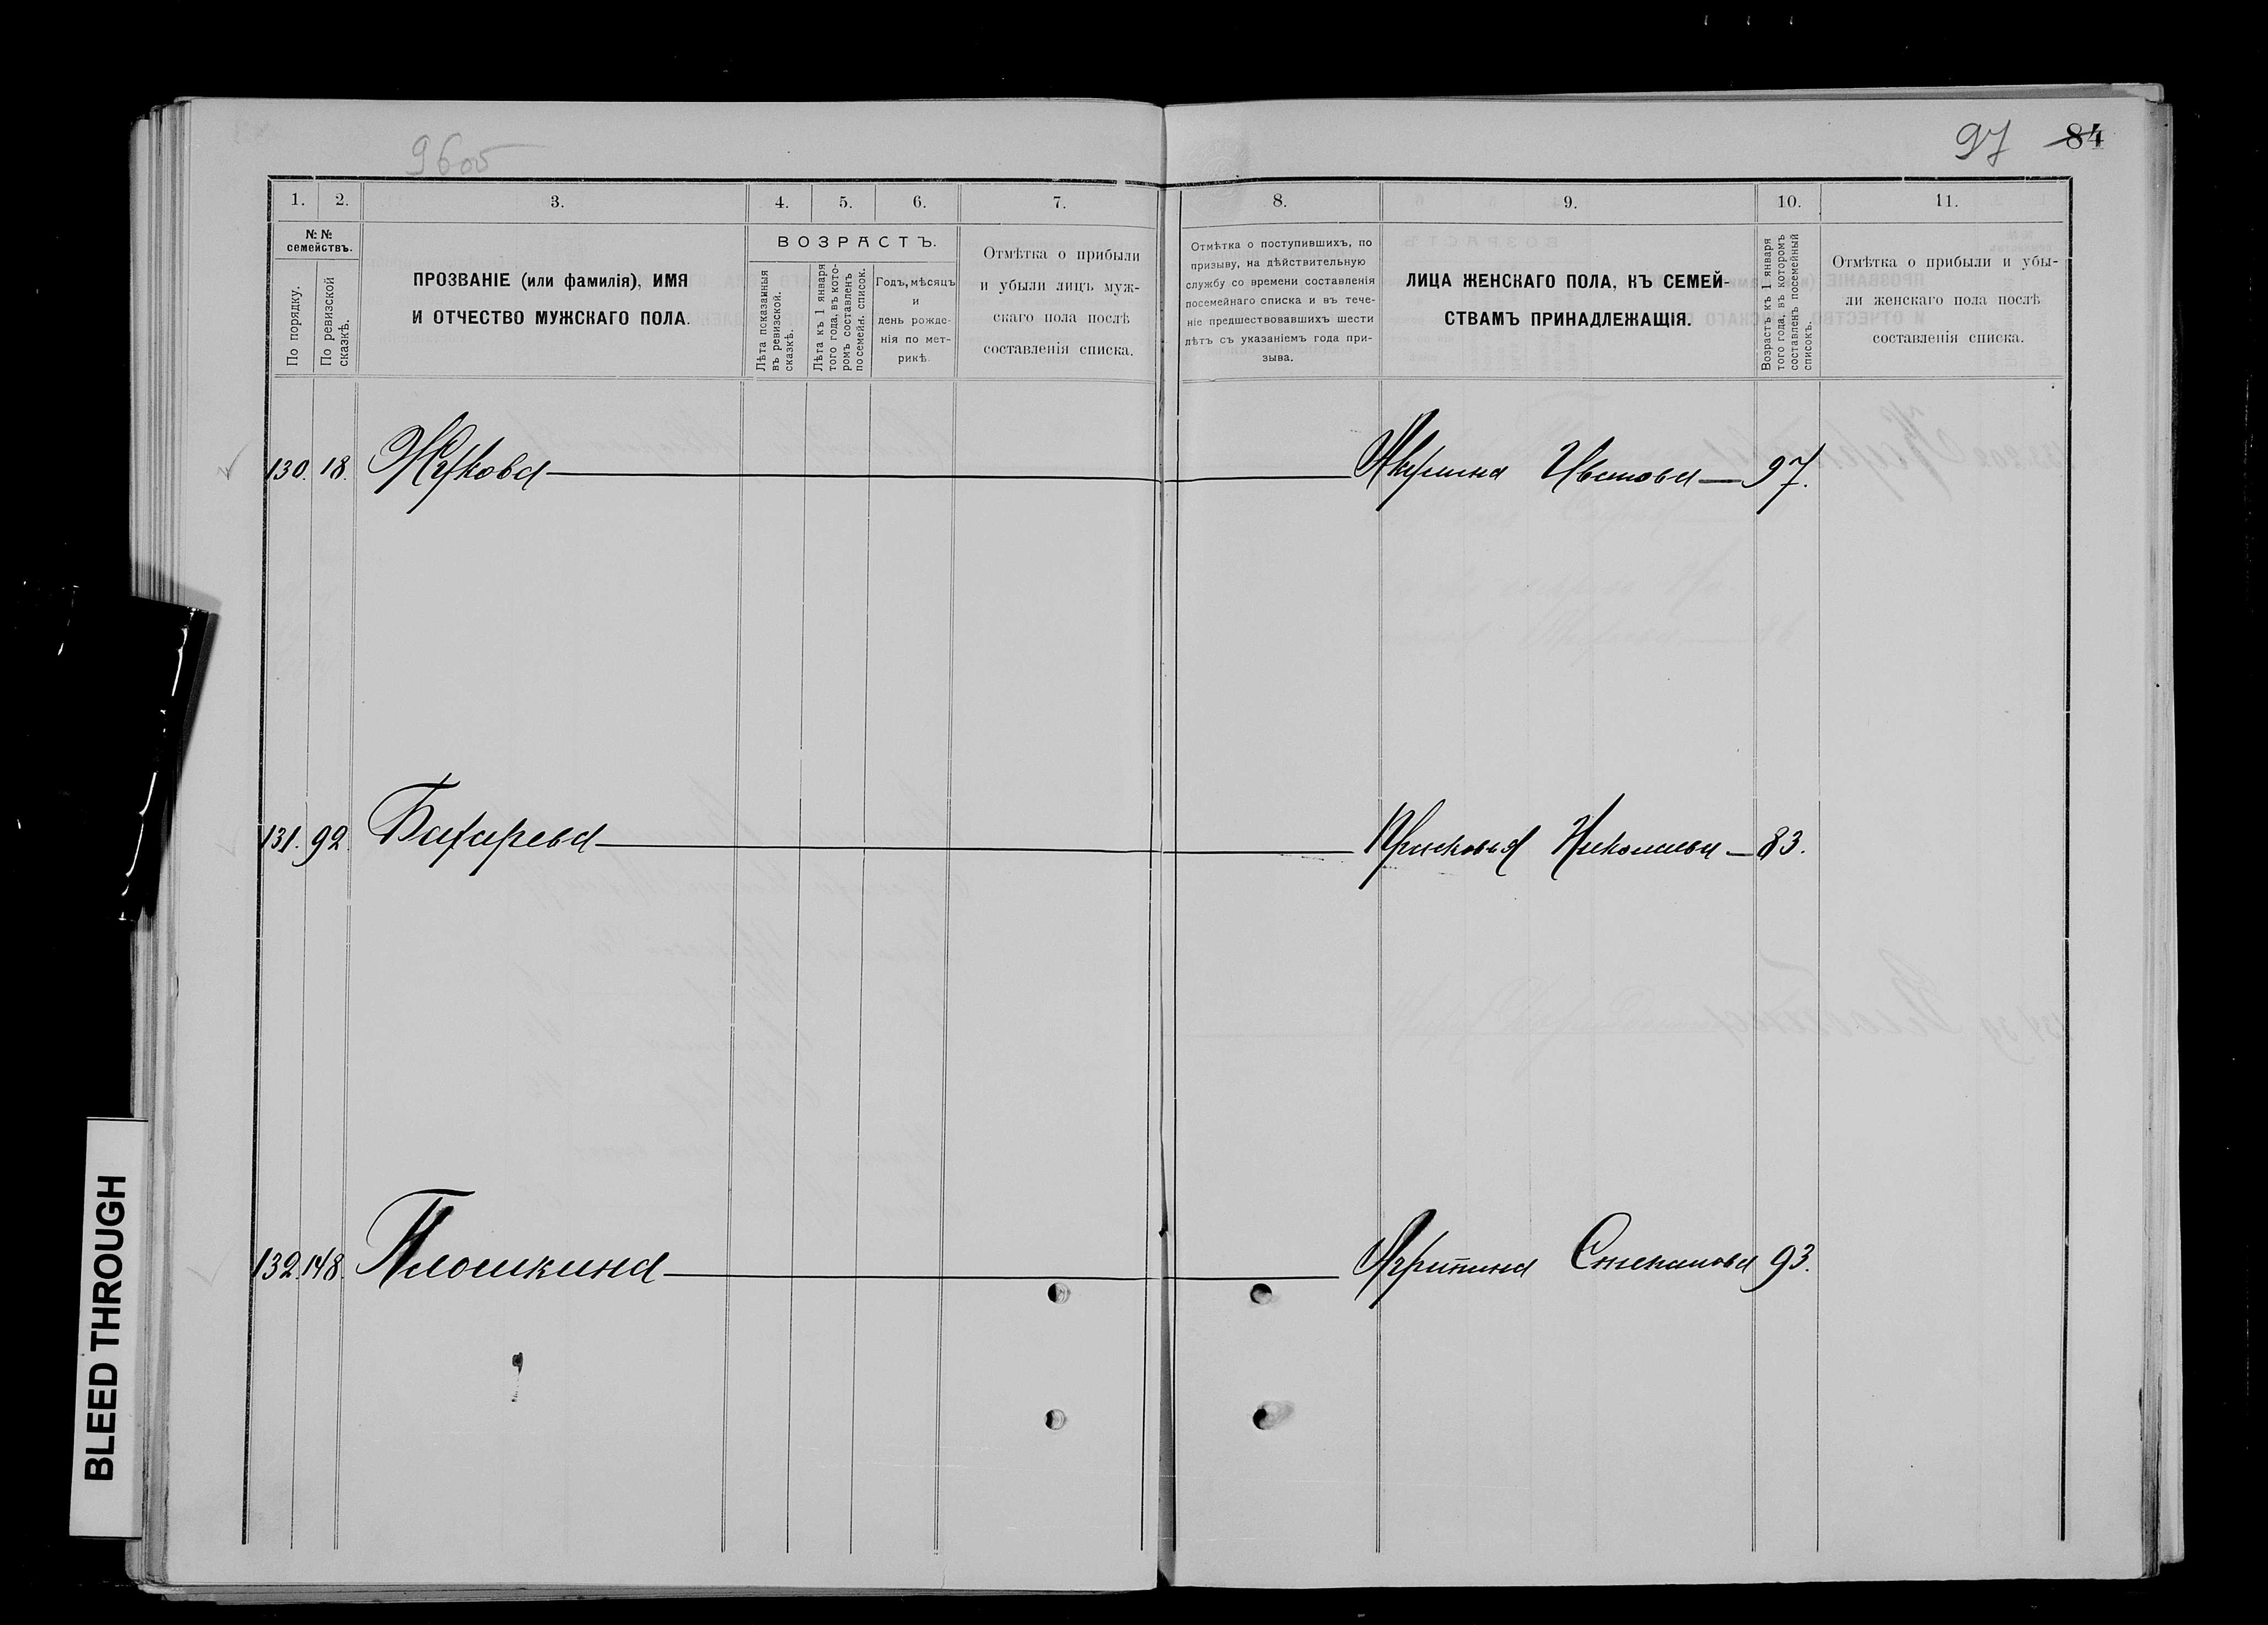 96об
97 84
1. 2. 3. 4. 5. 6. 7. 8. 9. 10. 11.
№№ семействъ.
По порядку.
По ревизской сказкѣ.
ПРОЗВАНІЕ (или фамилія), ИМЯ
И ОТЧЕСТВО МУЖСКАГО ПОЛА.
ВОЗРАСТЪ.
Лѣта показанныя
въ ревизской.
сказкѣ.
Лѣта къ 1 января
того года, въ кото-
ромъ составленъ
посемейн. список.
Годъ, мѣсяцъ
и
день рожде-
нія по мет-
рикѣ.
Отмѣтка о прибыли
и убыли лицъ муж-
скаго пола послѣ
составленія списка.
Отмѣтка о поступившихъ, по
призыву, на дѣйствительную
службу со времени составленія
посемейнаго списка и въ тече-
ніе предшествовавшихъ шести
лѣтъ съ указаніемъ года при-
зыва.
ЛИЦА ЖЕНСКАГО ПОЛА, КЪ СЕМЕЙ-
СТВАМЪ ПРИНАДЛЕЖАЩІЯ.
Возрастъ къ 1 января
того года, въ которомъ
составленъ посемейный
списокъ.
Отмѣтка о прибыли и убы-
ли женскаго пола послѣ
составленія списка.
130. 18. Жукова — Акулина Иванова — 97.
131. 92. — Прасковья Николаева — 83.
132. 148. Плошкина — Агрипина Степанова 93.
BLEED THROUGH